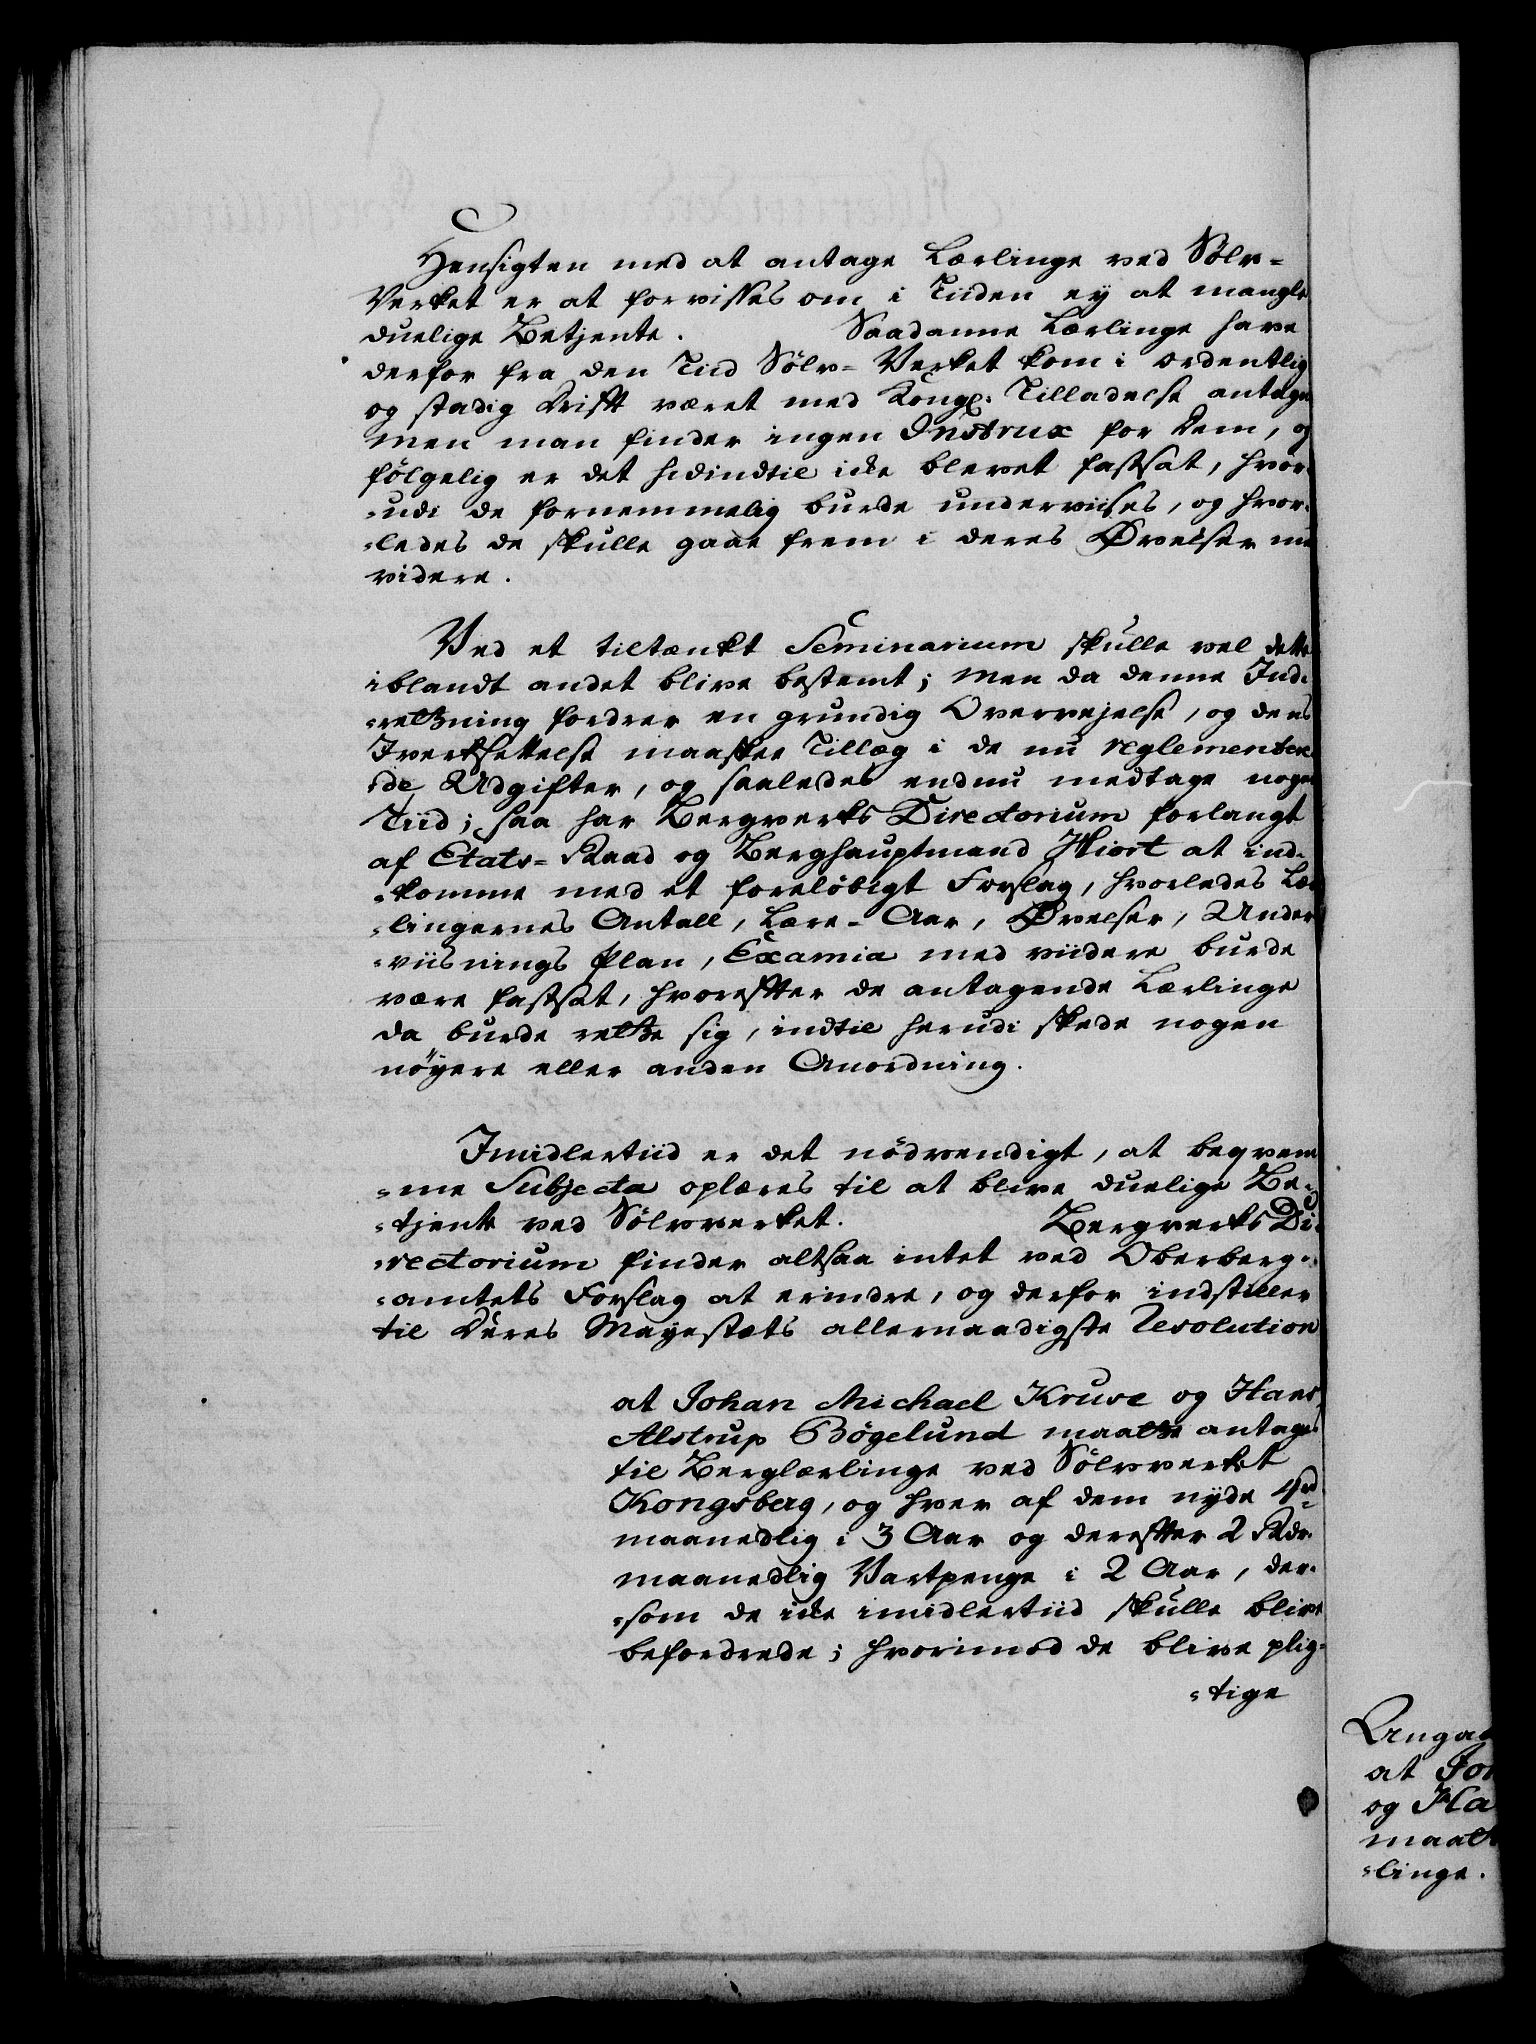 Hensigten med at antage Lærlinge ved Sölv-
Verket er at forvisses om i Tiiden ey at mangle
duelige Betjente. Saadanne Lærlinge have
derfor fra den Tiid Sölv-Verket kom i ordentlig
og stadig Drift været med Kongl: Tilladelse antagn
men man finder ingen Instrux for Dem, og
fölgelig er det hidindtil icke blevet fastsat, hvor-
-udi de fornemmelig burde underviises, og hvor-
-ledes de skulle gaae frem i deres Øvelser med
videre.
Ved et tiltænkt Seminarium skulle vel dette
iblandt andet blive bestemt; men da denne Ind-
-retning fordrer en grundig Overvejelse, og dens
Iverksettelse maaskee Tillæg i de nu reglementere
-de Udgifter, og saaledes endnu medtage nogen
Tiid; saa har Bergverks Directorium forlangt
af Etats-Raad og Berghauptmand Hiort at ind-
-komme med et foreløbigt Forslag, hvorledes Lær
-lingernes Antall, Lære-Aar, Øvelser, Under
-viisnings Plan, Examia med viidere burde
være fastsat, hvorefter de antagende Lærlinge
da burde rette sig, indtil herudi skede nogen
nöyere eller anden Anordning.
Imidlertiid er det nödvendigt, at beqvem
-me Subjecta oplæres til at blive duelige Be-
-tjente ved Sölvverket. Bergverks Di-
-rectorium finder altsaa intet ved Oberberg-
-amtets Forslag at erindre, og derfor indstiller
til Deres Mayestæts allernaadigste Resolution
at Johan Michael Kruse og Hans
Alstrup Bøgelund maatte antages
til Berglærlinge ved Sölvverket
Kongsberg, og hver af dem nyde 4rd
maanedlig i 3 Aar og derefter 2 Rdr.
maanedlig Vartpenge i 2 Aar, der-
-som de icke imidlertiid skulle blive
befordrede; hvorimod de blive plig-
-tige
Angaa
at Joh
og Ha
maatt
-linge.